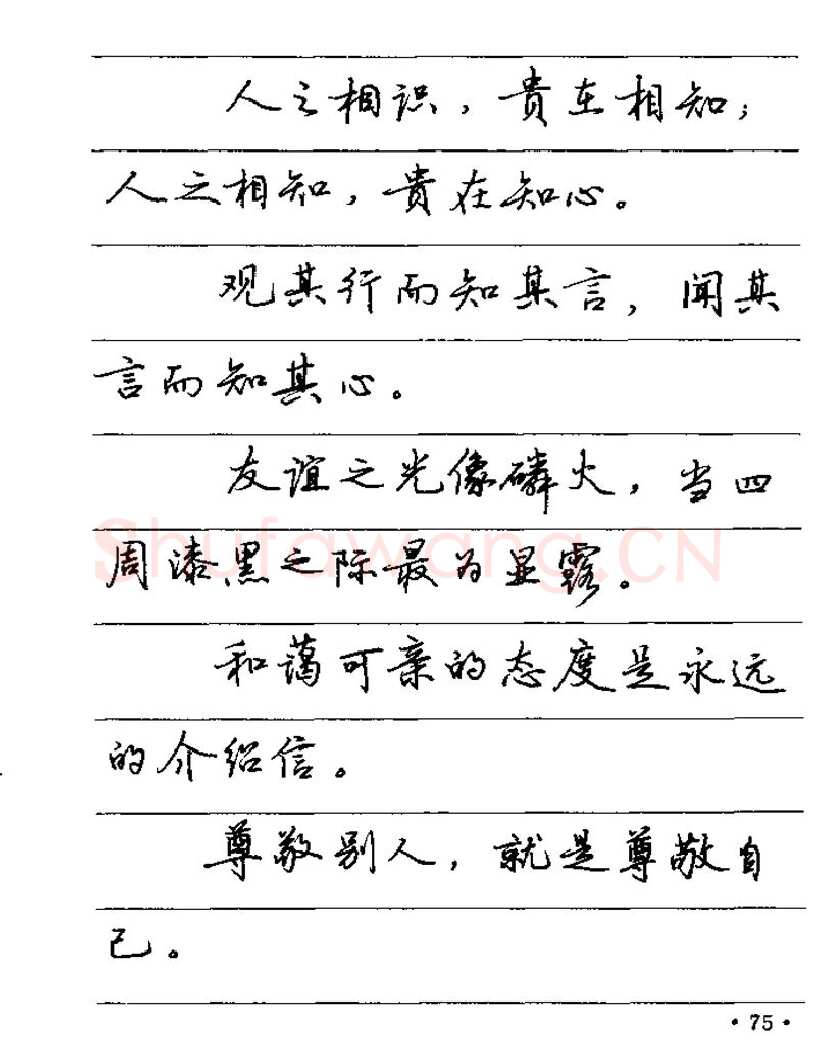 人之相识，贵在相知；
人之相知，贵在知心。
观其行而知其言，闻其
言而知其心。
友谊之光像磷火，当四
周漆黑之际最为显露。
shufawang.CN
和蔼可亲的态度是永远
的介绍信。
尊敬别人，就是尊敬自
己。
·75·